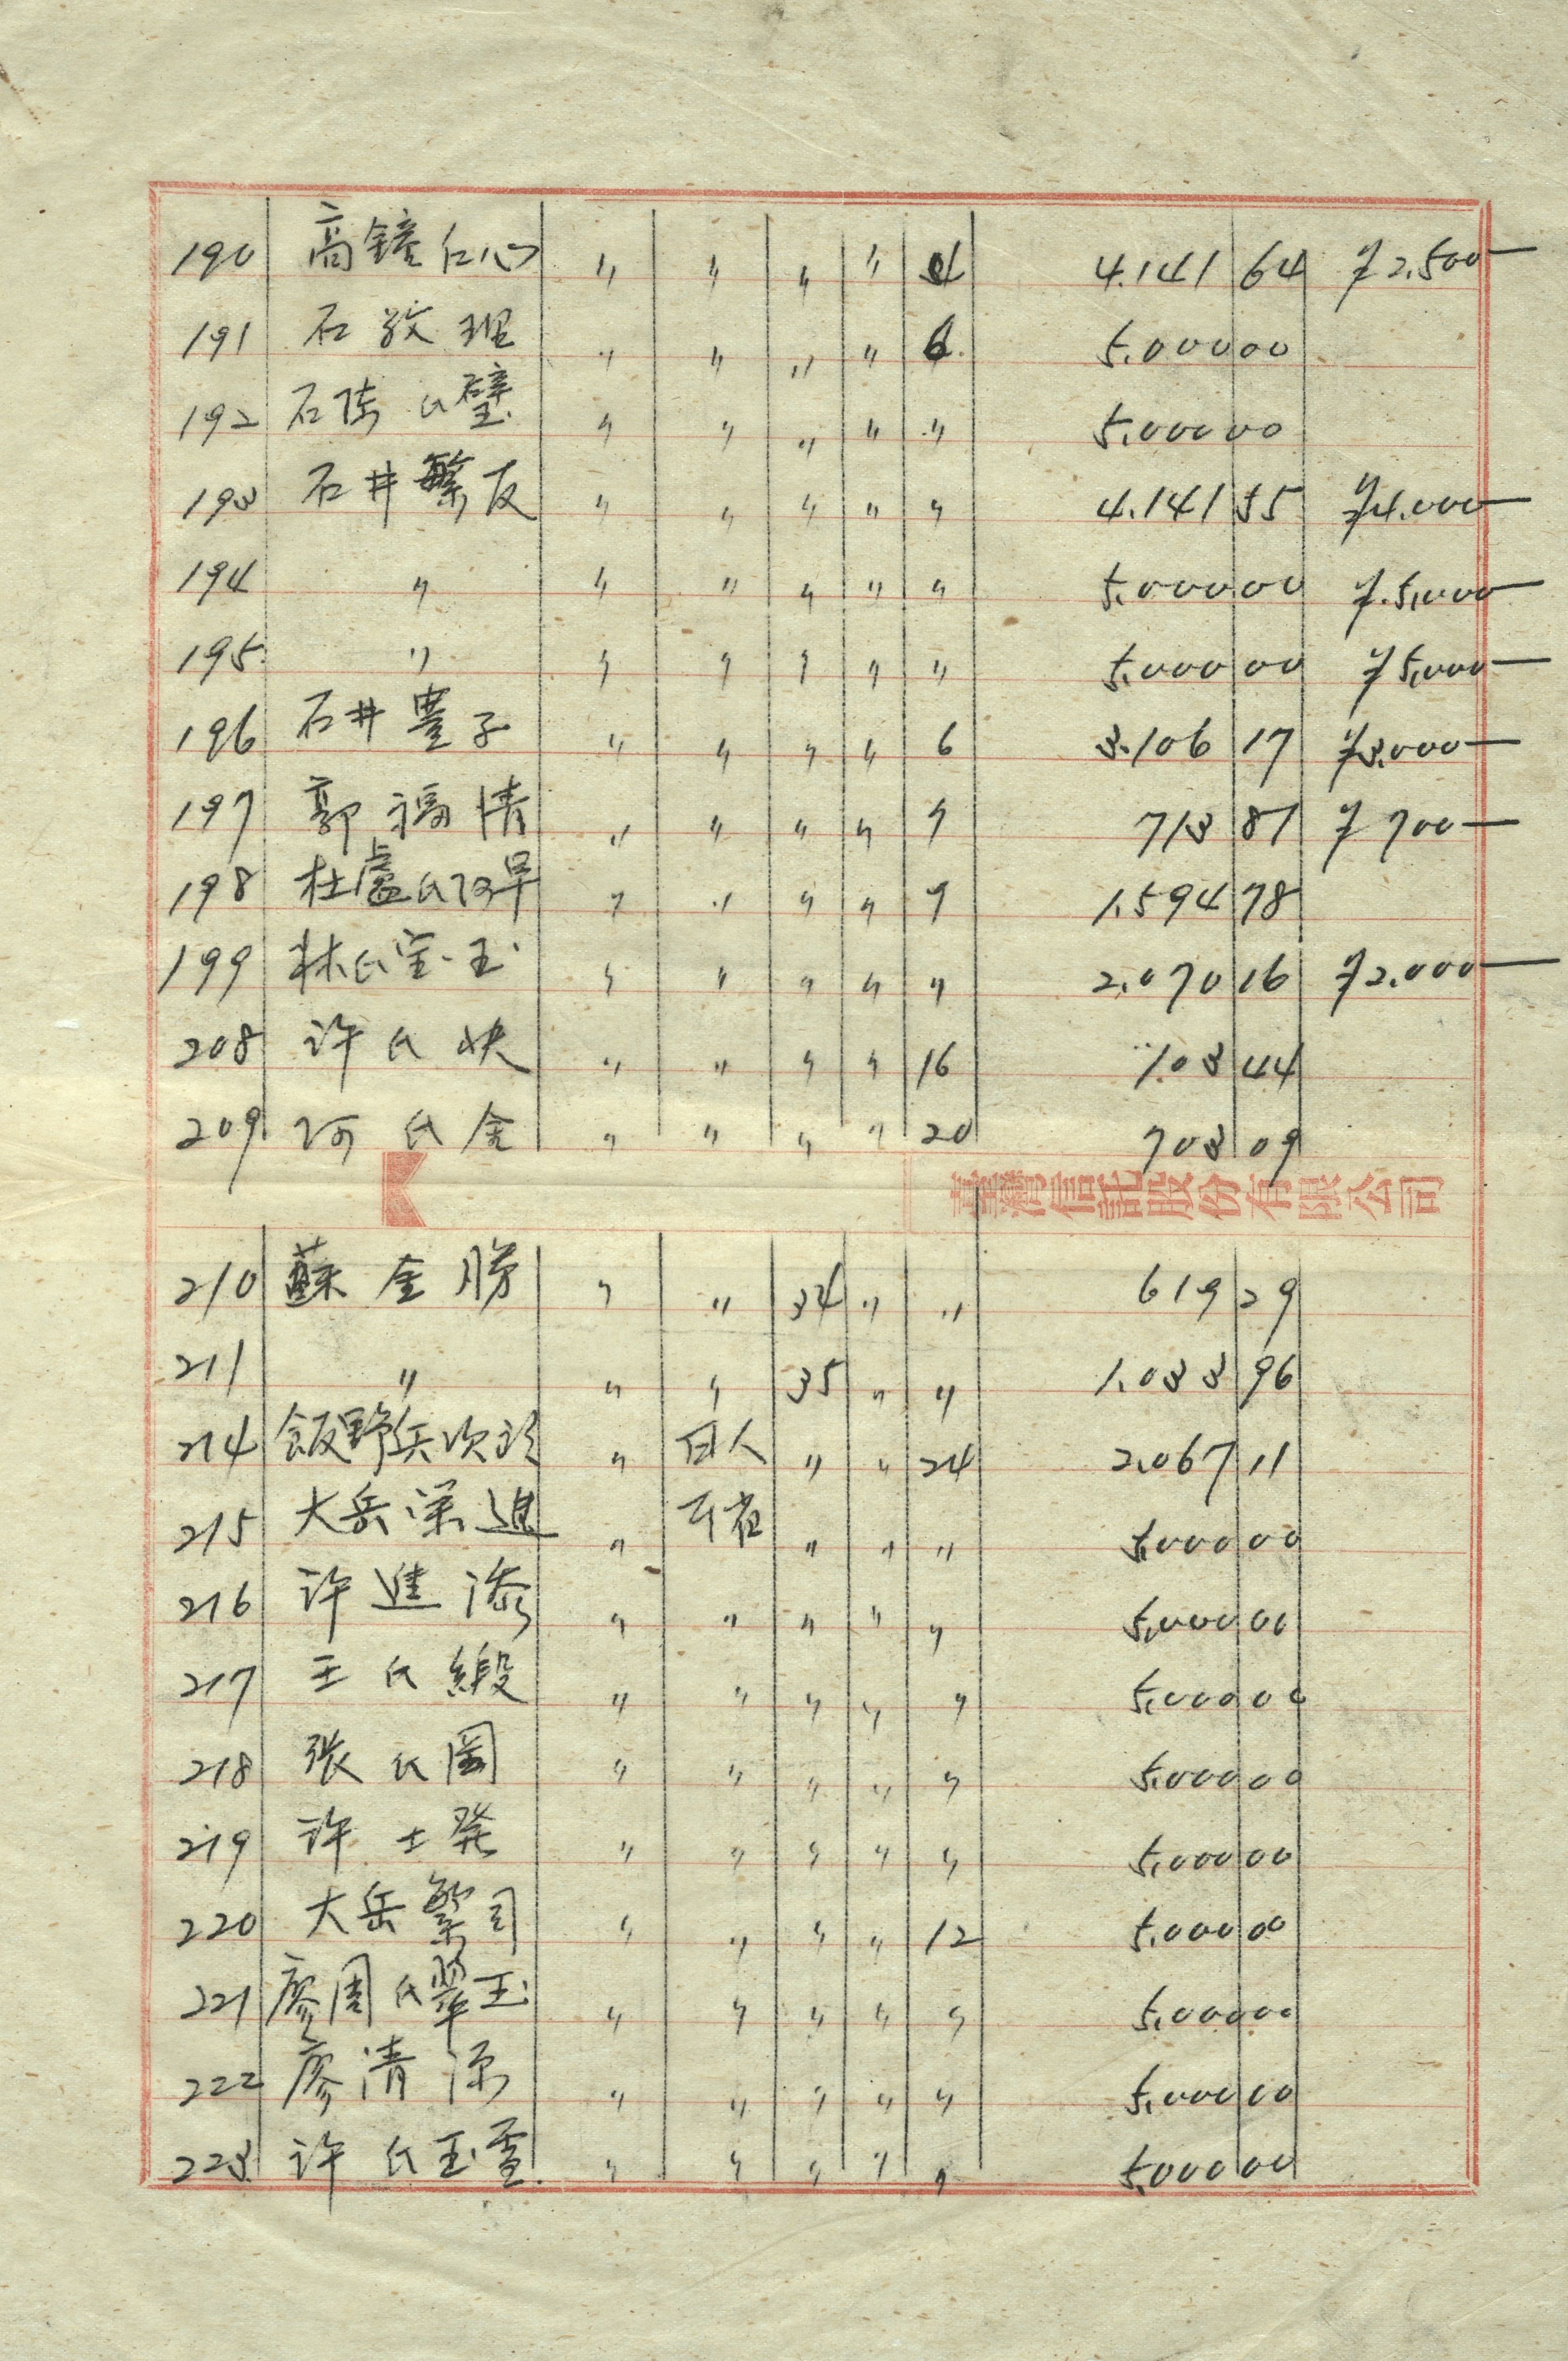 190 高鐘仁心 〃 〃 〃 〃 4 4.141 64 2.500
191 石敬理 〃 〃 〃 〃 6 5.000 00
192 石陳氏璧 〃 〃 〃 〃 〃 5.000 00
193 石井繁友 〃 〃 〃 〃 〃 4.141 55 4.000
194 〃 〃 〃 〃 〃 〃 5.000 00 5.000
195 〃 〃 〃 〃 〃 〃 5.000 00 5.000
196 石井豊子 〃 〃 〃 〃 6 3.106 17 3.000
197 郭福清 〃 〃 〃 〃 〃 713 81 700
198 杜盧氏阿旱 〃 〃 〃 〃 9 1.594 78
199 林氏宝玉 〃 〃 〃 〃 〃 2.070 16 2.000
208 許氏快 〃 〃 〃 〃 16 103 44
209 何氏金 〃 〃 〃 〃 20 703 09
臺灣信託股份有限公司
210 蘇金勝 〃 〃 34 〃 〃 619 29
211 〃 〃 〃 35 〃 〃 1.033 96
214 飯野兵次郎 〃 日人 〃 〃 24 2.067 11
215 大岳深進 〃 本省 〃 〃 〃 5.000 00
216 許進添 〃 〃 〃 〃 〃 5.000 00
217 王氏緞 〃 〃 〃 〃 〃 5.000 00
218 張氏 〃 〃 〃 〃 〃 5.000 00
219 許士発 〃 〃 〃 〃 〃 5.000 00
220 大岳繁司 〃 〃 〃 〃 12 5.000 00
221 廖周氏翠玉 〃 〃 〃 〃 〃 5.000 00
222 廖清源 〃 〃 〃 〃 〃 5.000 00
223 許氏玉雪 〃 〃 〃 〃 〃 5.000 00